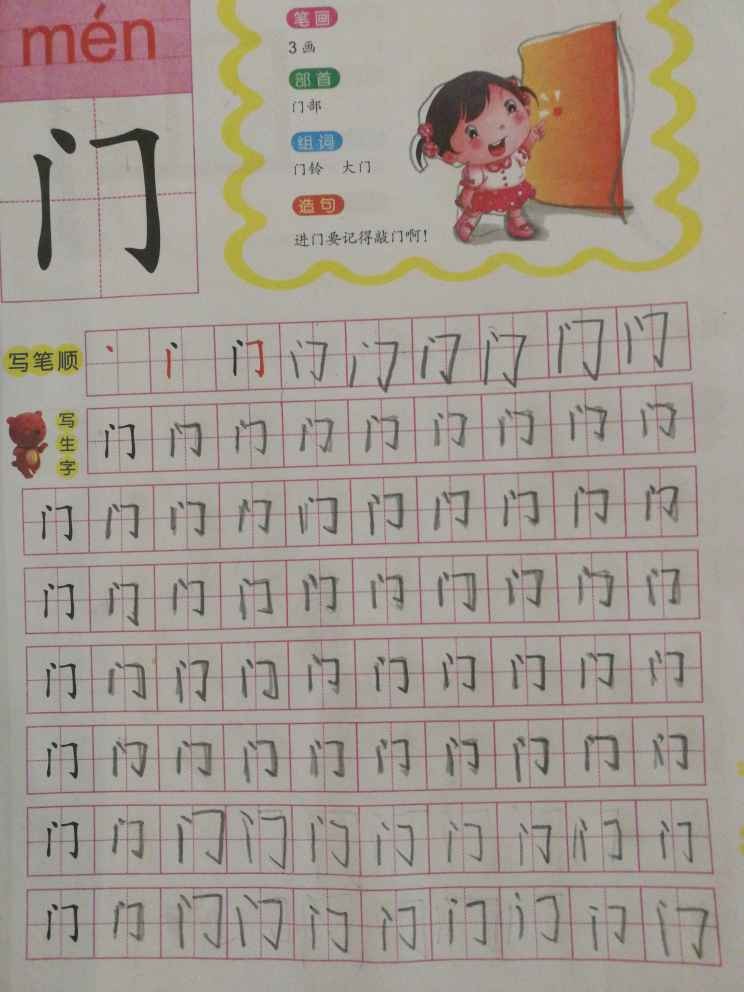 mén
门
笔画
3画
部首
门部
组词
门铃 大门
造句
进门要记得敲门啊!
写笔顺 丶 门 门 门 门 门 门 门
写生字 门 门 门 门 门 门 门 门 门
门 门 门 门 门 门 门 门 门 门
门 门 门 门 门 门 门 门 门 门
门 门 门 门 门 门 门 门 门 门
门 门 门 门 门 门 门 门 门 门
门 门 门 门 门 门 门 门 门 门
门 门 门 门 门 门 门 门 门 门